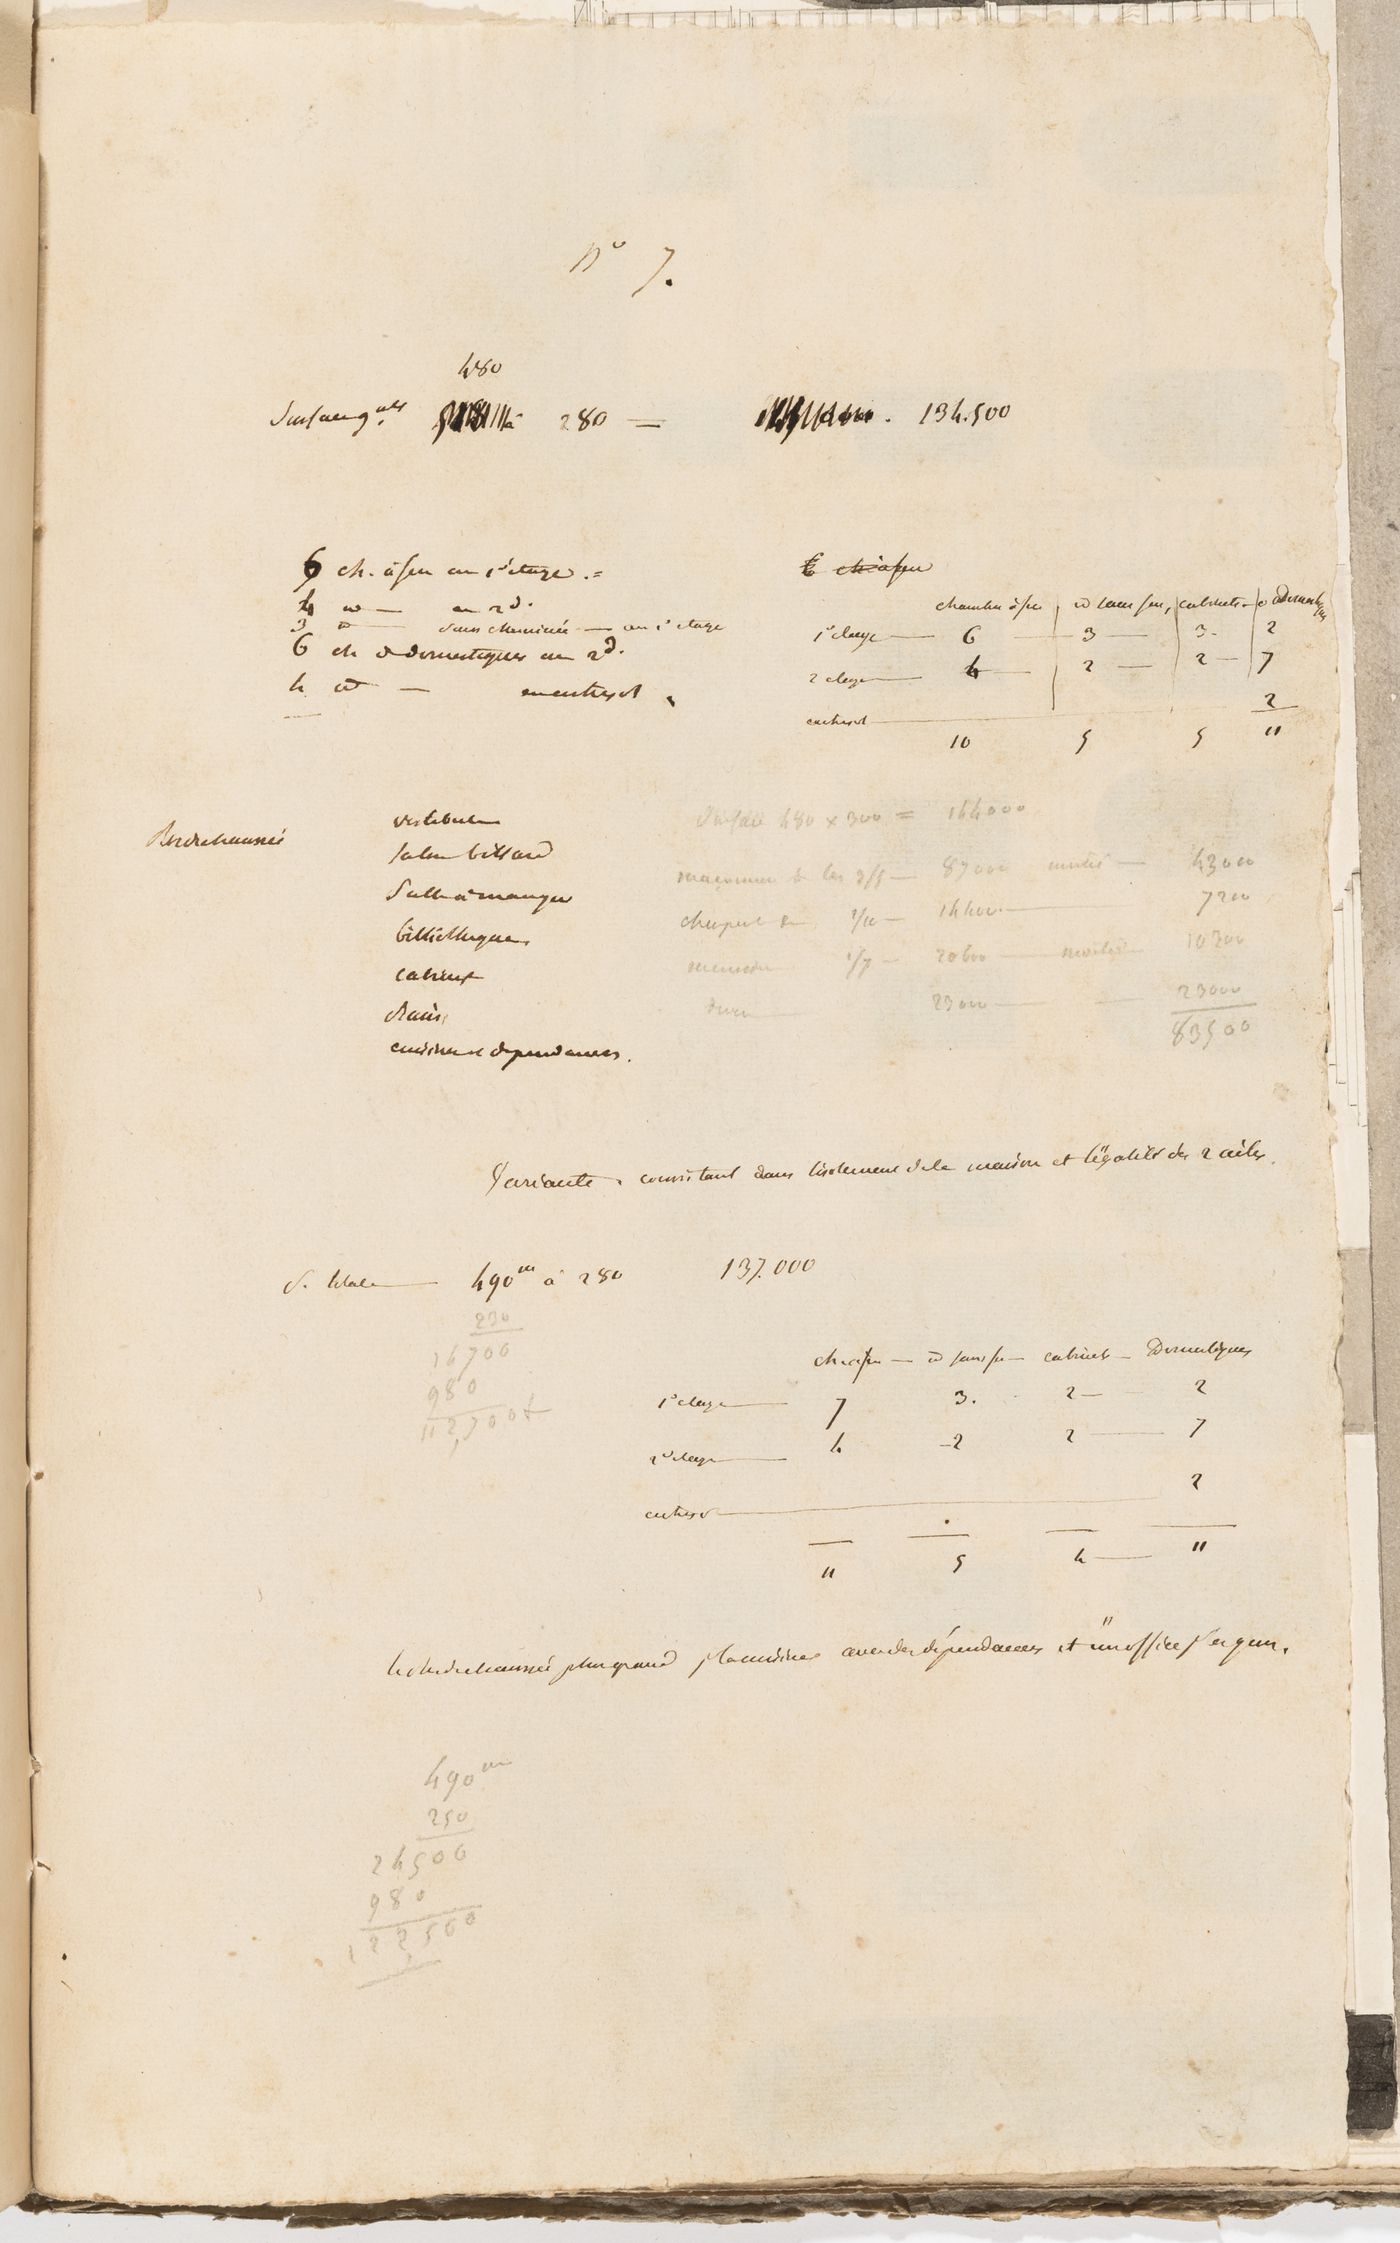 No 7.
480
280 = 134.500
6 ch. à feu au 1er etage. =
4 id — au 2d.
3 id — sans cheminée — au 1er etage
6 ch de domestiques au 2d.
4 id — en entresol
6 ch à feu
chambre à feu id sans feu, cabinets — domestiques
1er etage — 6 — 3 — 3. 2
2 etage — 4 — 2 — 2 — 7
entresol — 2
10 5 5 11
Rez de chaussée
vestibule
salon billard
salle à manger
bibliotheque
cabinet
bains
cuisine et dependances.
Surface 480 x 300 = 144000
maçonnerie les 3/5 — 87000 moitié — 43000
charpente 1/10 — 14400 — 7200
menuiserie 1/7 — 20600 — moitié 10300
23000 — 23000
83500
Variante. consistant dans l'isolement de la maison et l'égalité des 2 ailes.
S. totale — 490m à 280 137.000
230
14700
980
112,700 f
ch. à feu — id sans feu — cabinets — Domestiques
1er etage — 7 3. 2 — 2
2e etage — 4 2 2 — 7
entresol — 2
11 5 4 — 11
le rez de chaussée plus grand plus cuisines avec des dépendances et un office
490m
250
24500
980
122,500